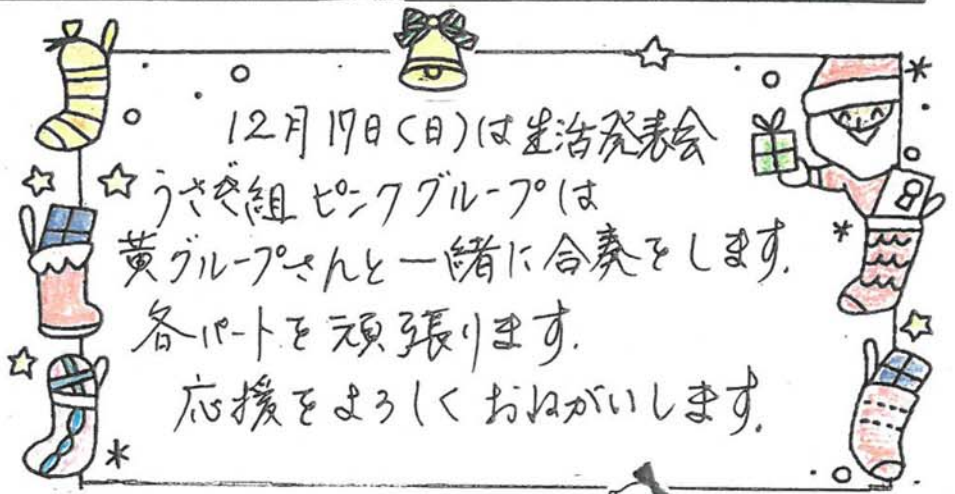 12月17日(日)は生活発表会
うさぎ組 ピンクグループは
黄グループさんと一緒に合奏をします.
各パートを頑張ります.
応援をよろしくおねがいします.